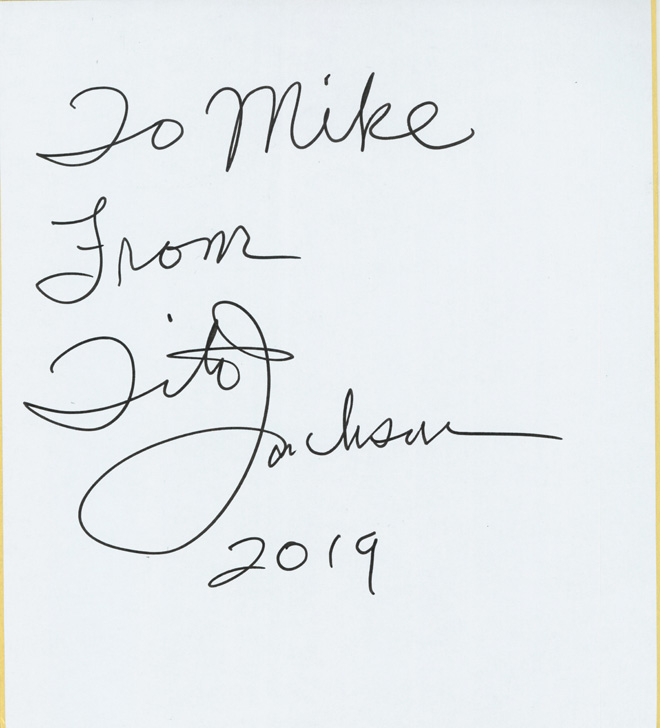 To Mike
From
Tito
Jackson
2019